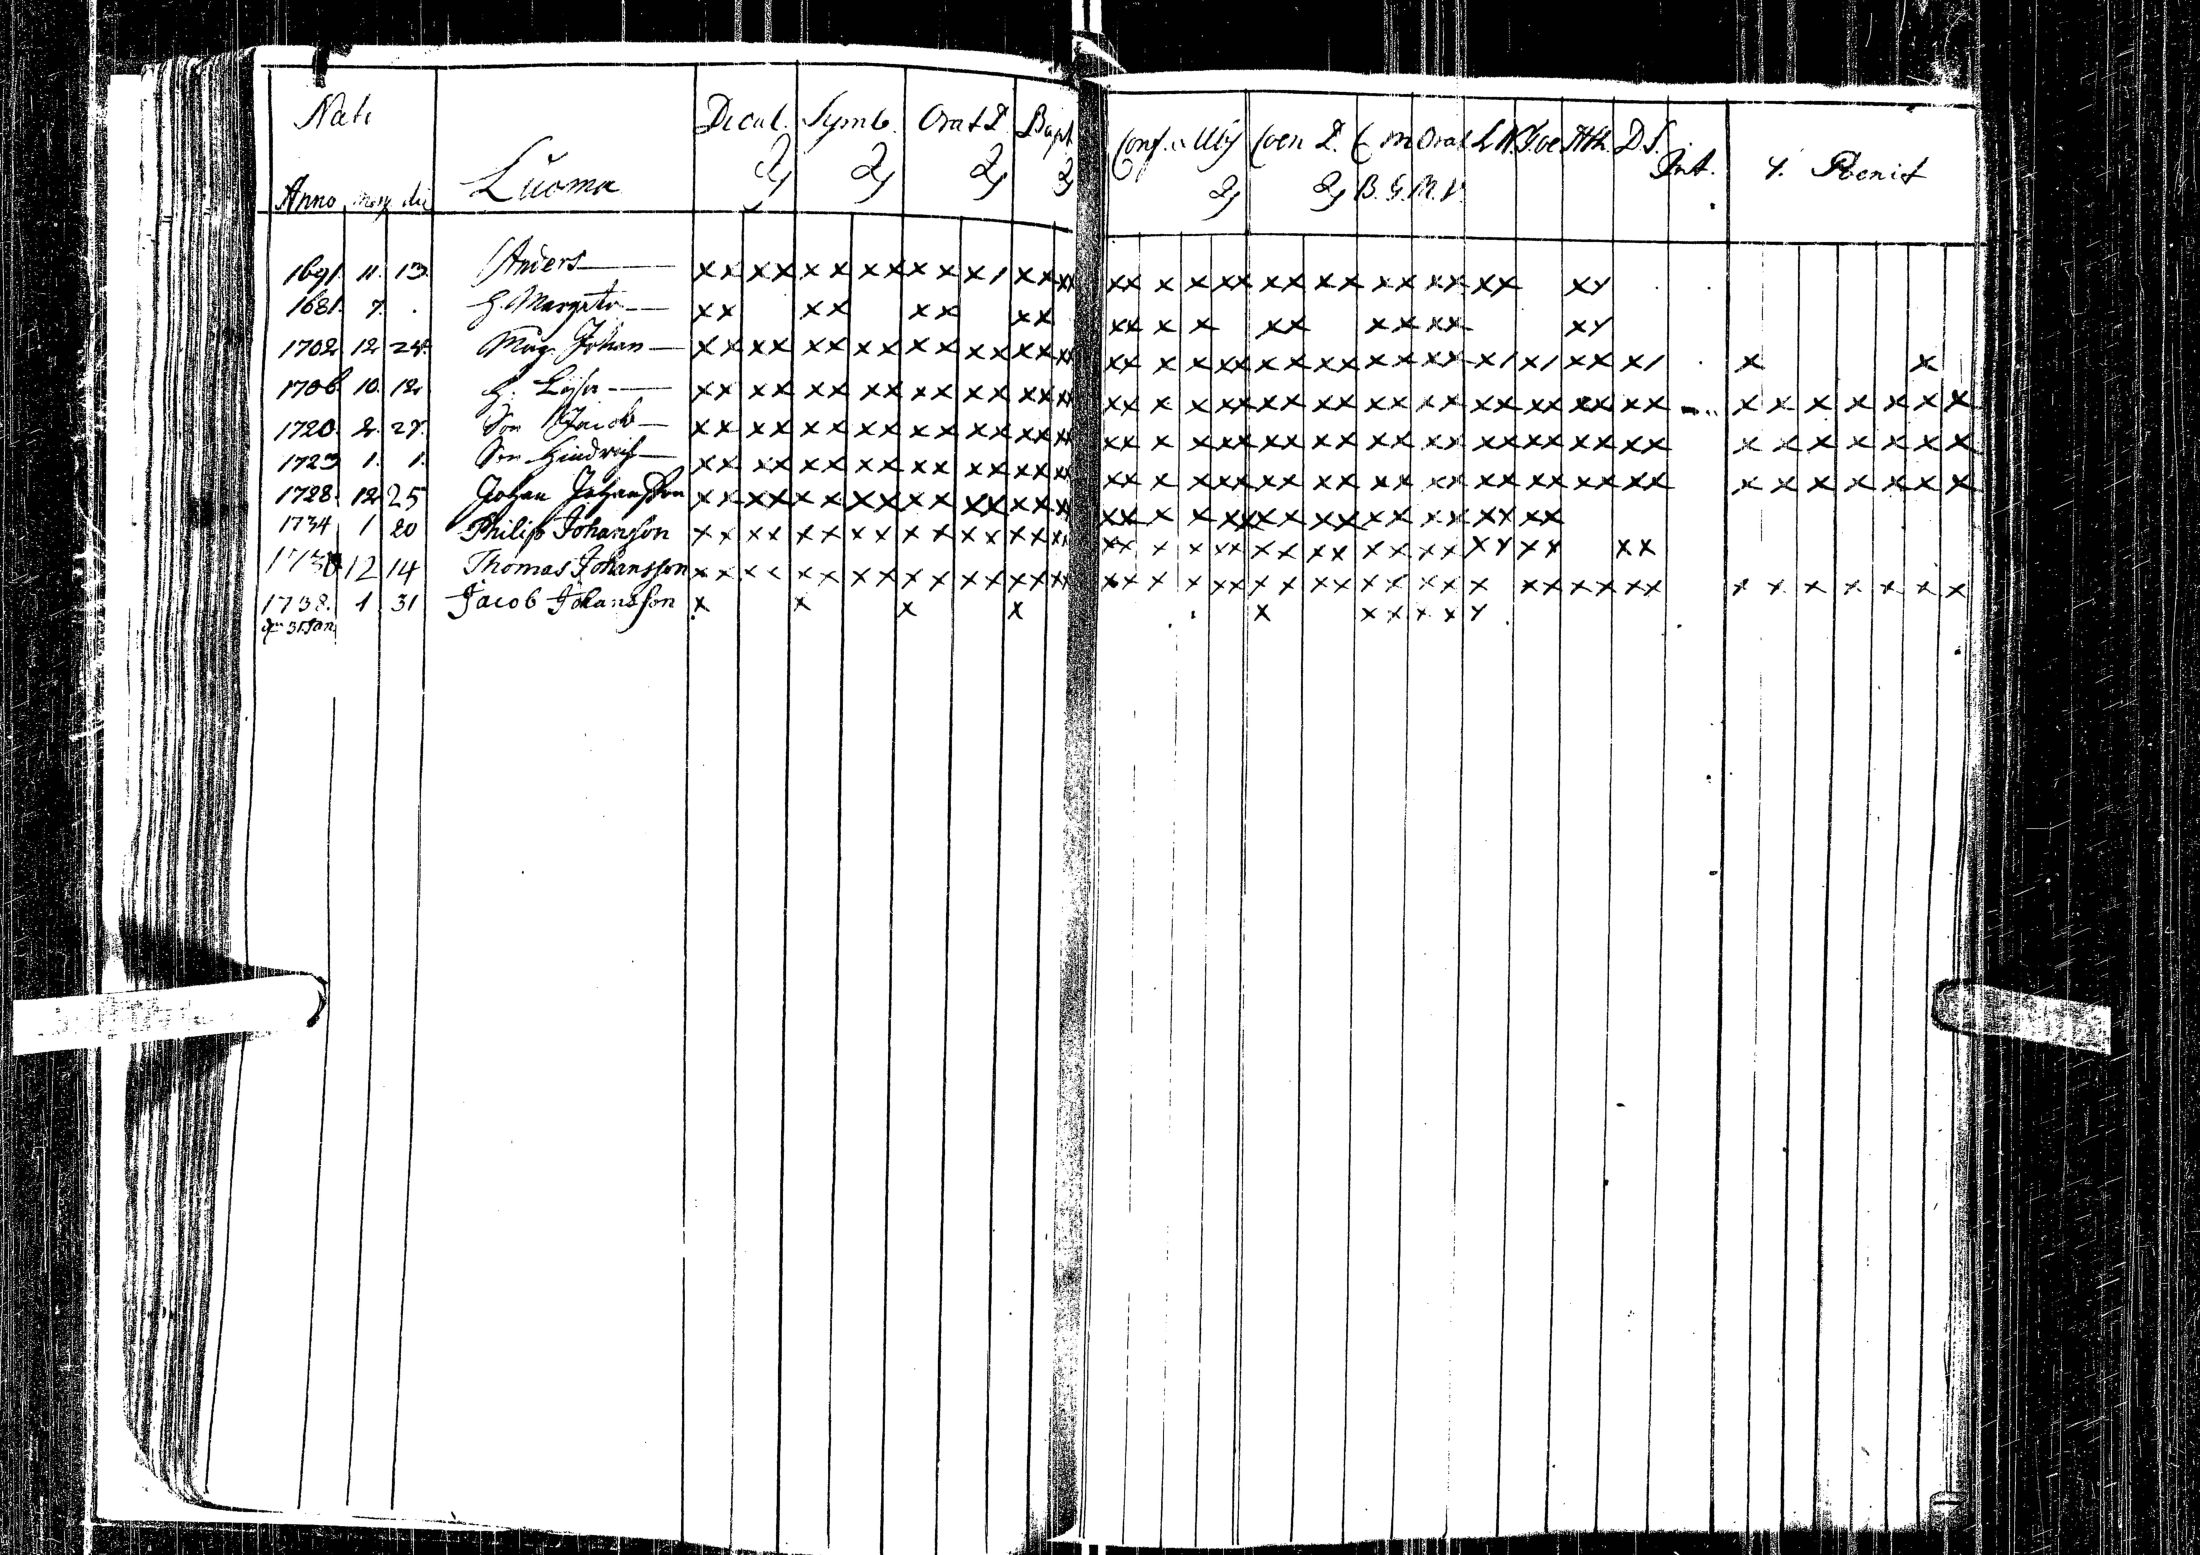 Nati
Decal. Symb. Orat D. Bapt
Conf. Coen D. Orat D.S.
Int. Poenit
Anno die
Luoma
B. G. M. V.
1691. 11. 13. Anders xx xx xx xx xx x/ xx xx xx x x xx xx xx xx xx xx xy
1681. 7. H. Margeta xx xx xx xx xx x x xx xx xx xy
1702 12 24. Måg. Johan xx xx xx xx xx xx xx xx xx x x xx xx xx xx xx x/ x/ xx x/ x x
1706 10. 12. H. Lisa xx xx xx xx xx xx xx xx xx x x xx xx xx xx xx xx xx xx xx x x x x x x x
1720. 2. 27. Son Jacob xx xx xx xx xx xx xx xx xx x x xx xx xx xx xx xx xx xx xx x x x x x x x
1723 1. 1. Son Hindrich xx xx xx xx xx xx xx xx xx x x xx xx xx xx xx xx xx xx xx x x x x x x x
1728. 12 25 Johan Johansson xx xx xx xx xx xx xx xx xx x x xx xx xx xx xx xy xx
1734 1 20 Philip Johansson xx xx xx xx xx xx xx xx xx x x xx xx xx xx xx xy xy xx
12 14 Thomas Johansson xx xx xx xx xx xx xx xx xx x x xx xx xx xx xx x xx xx xx x x x x x x x
1738. 1 31 Jacob Johansson x x x x x xx xx y
31 Jan